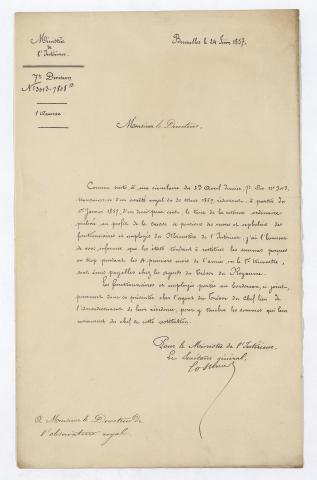 Ministère
de
l'Intérieur.
7e Division
N° 3013-7808 B
1 Annexe
Bruxelles le 24 Juin 1857.
Monsieur le Directeur,
Comme suite à ma circulaire du 23 Avril dernier, 7e Don n° 3013,
transmissive d'un arrêté royal du 30 Mars 1857, réduisant, à partir du
1er Janvier 1857, d'un demi pour cent, le taux de la retenue ordinaire
prélevée au profit de la caisse de pensions des veuves et orphelins des
fonctionnaires et employés du Ministère de l'Intérieur, j'ai l'honneur
de vous informer que les états tendant à restituer les sommes perçues
en trop pendant les premiers mois de l'année, ou le 1er trimestre,
sont émis payables chez les agents du trésor du Royaume.
Les fonctionnaires et employés portés au bordereau, ci-joint,
peuvent donc se présenter chez l'agent du trésor du chef lieu de
l'arrondissement de leur résidence, pour y toucher les sommes qui leur
reviennent du chef de cette restitution.
Pour le Ministre de l'Intérieur:
Le Secrétaire général,
A Monsieur le Directeur de
l'observatoire royal.